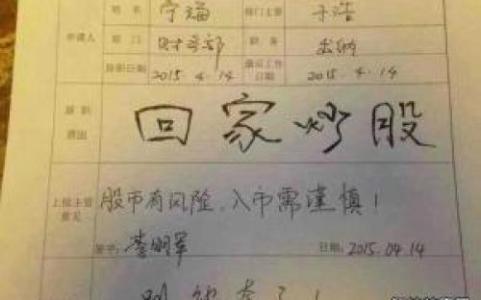 姓名 宁海 部门主管 于浩
申请人 部门 财务部 职务 出纳
辞职日期 2015.4.14 最后工作日期 2015.4.14
辞职原因 回家炒股
上级主管意见 股市有风险，入市需谨慎！
签字： 李明军 日期：2015.04.14